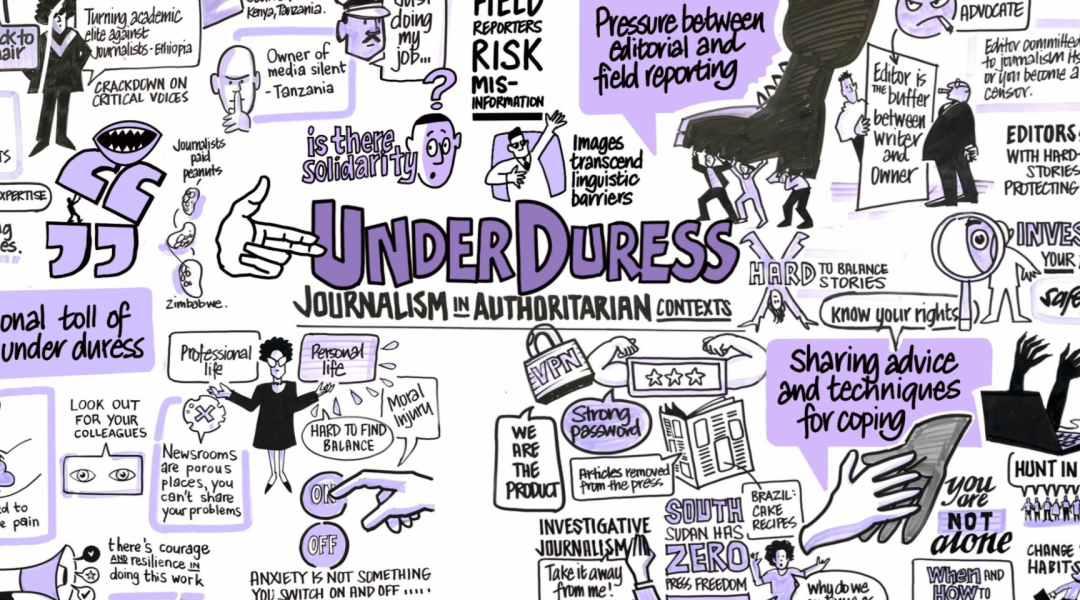 Turning academic
elite against
journalists - Ethiopia
CRACKDOWN ON
CRITICAL VOICES
Kenya, Tanzania.
Owner of
media silent
- Tanzania
doing
my
job...
?
FIELD
REPORTERS
RISK
MIS-
INFORMATION
Pressure between
editorial and
field reporting
ADVOCATE
Editor committed
to journalism
or you become a
censor.
Editor is
THE buffer
between
writer
and
Owner
EDITORS
WITH HARD-
STORIES
PROTECTING
EXPERTISE
Journalists
paid
peanuts
Zimbabwe.
is there
solidarity
Images
transcend
linguistic
barriers
UNDER DURESS
JOURNALISM IN AUTHORITARIAN CONTEXTS
HARD TO BALANCE
STORIES
Know your rights
YOUR
onal toll of
under duress
Professional
life
Personal
life
HARD TO FIND
BALANCE
Moral
Injury
LOOK OUT
FOR YOUR
COLLEAGUES
Newsrooms
are porous
places, you
can't share
your problems
ON
OFF
ANXIETY IS NOT SOMETHING
YOU SWITCH ON AND OFF .....
pain
there's courage
AND resilience IN
doing this work
VPN
Strong
password
WE
ARE
THE
PRODUCT
Articles removed
from the press
Sharing advice
and techniques
for coping
INVESTIGATIVE
JOURNALISM
Take it away
from me!
SOUTH
SUDAN HAS
ZERO
PRESS FREEDOM
BRAZIL:
CAKE
RECIPES
Why do we
you
are
NOT
alone
HUNT IN
CHANGE
HABITS
When AND
HOW TO